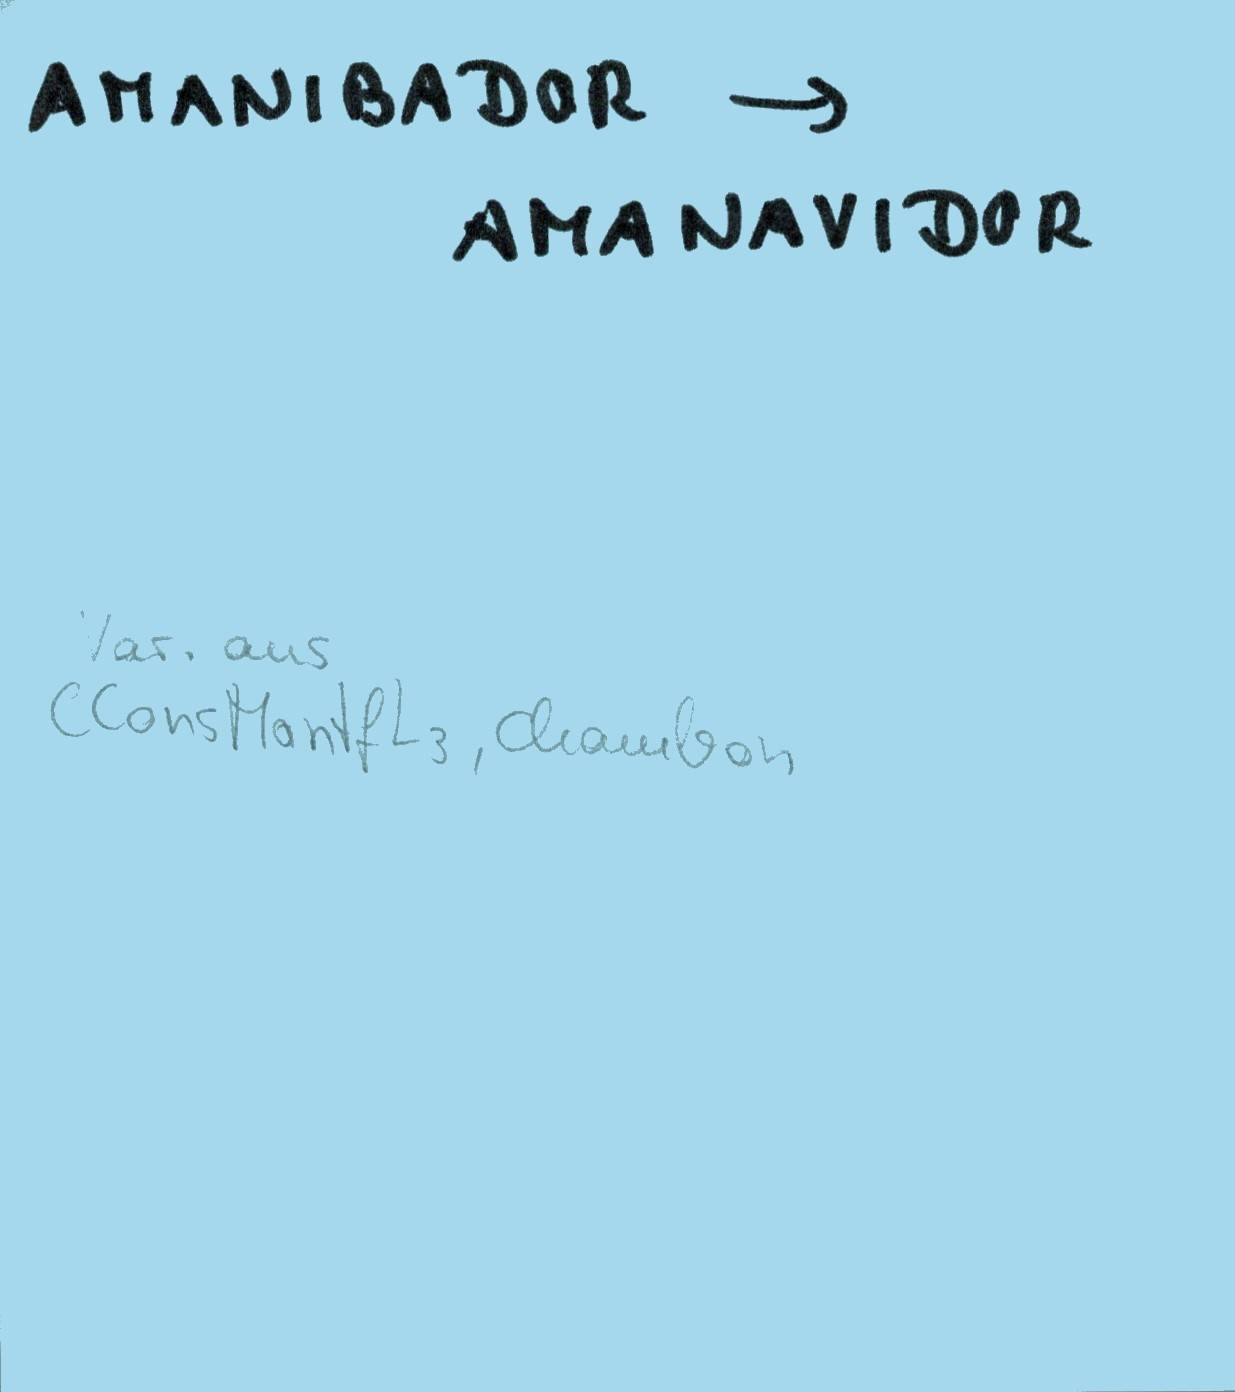 AMANIBADOR →
AMANAVIDOR
Var. aus
CConsMantfL3, Chambon